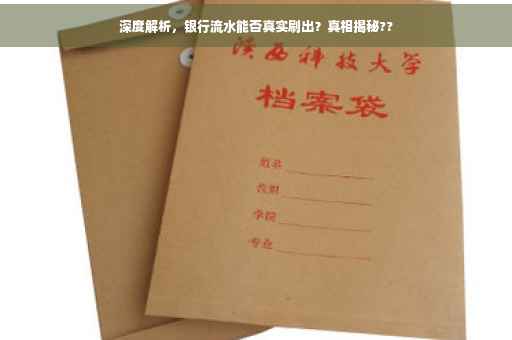 深度解析，银行流水能否真实刷出？真相揭秘??
陕西科技大学
档案袋
姓名
性别
学院
专业